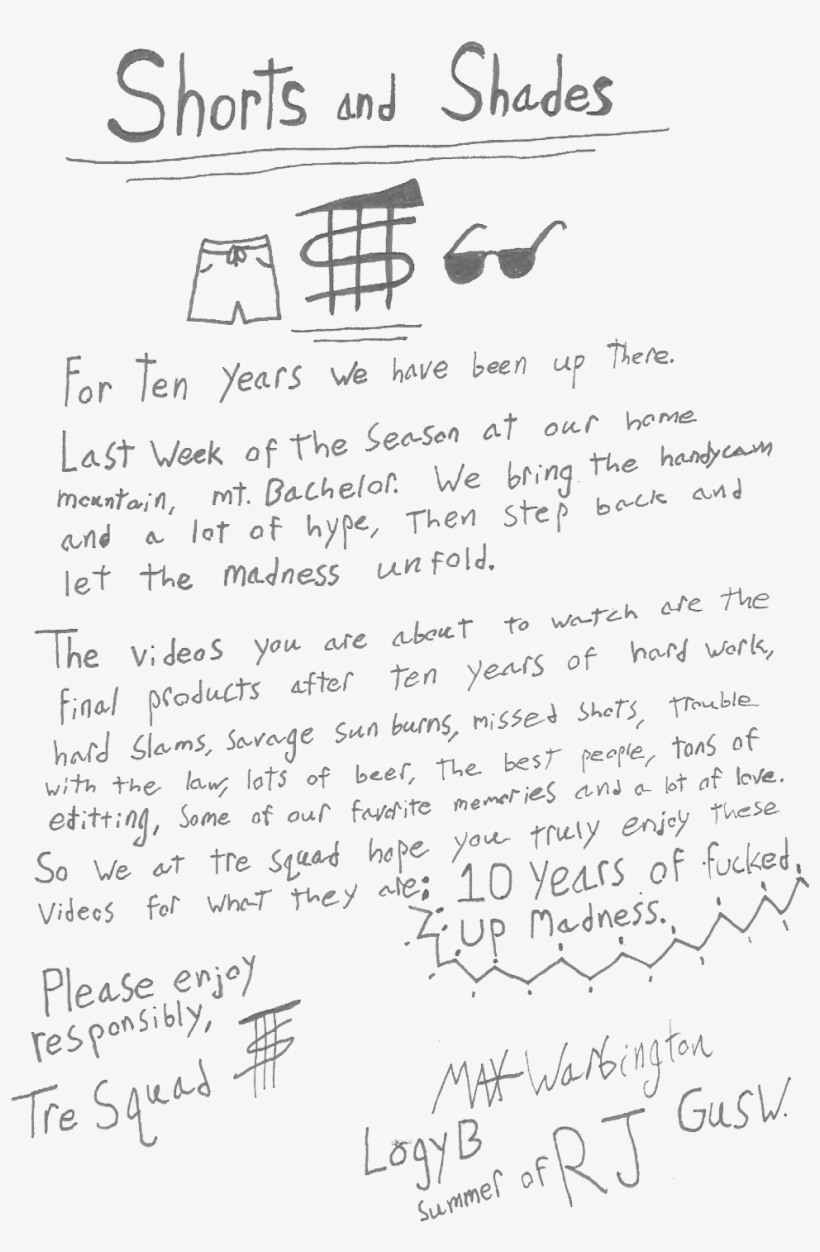 Shorts and Shades
For Ten Years we have been up There.
Last Week of The Season at our home
mountain, mt. Bachelor. We bring the handycam
and a lot of hype, Then Step back and
let the madness unfold.
The videos you are about to watch are the
final products after ten years of hard work,
hard Slams, Savage Sun burns, missed Shots, Trouble
with the law, lots of beer, The best people, tons of
editting, Some of our favorite memories and a lot of love.
So We at tre Squad hope you truly enjoy these
Videos for what they are: 10 Years of fucked
up Madness.
Please enjoy
responsibly,
Tre Squad
MAX Warbington
Logy B
Gus W.
Summer of RJ